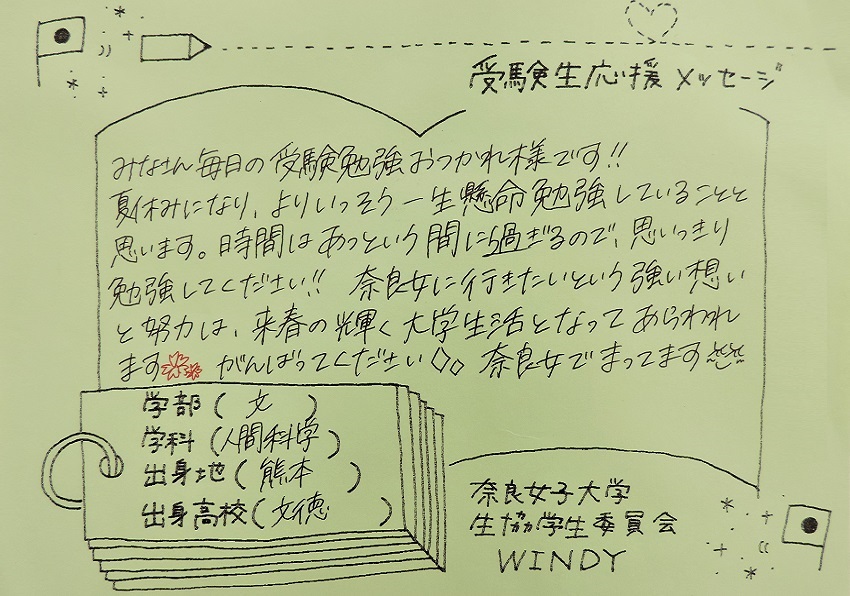 受験生応援メッセージ
みなさん毎日の受験勉強おつかれ様です!!
夏休みになり、よりいっそう一生懸命勉強していることと
思います。時間はあっという間に過ぎるので、思いっきり
勉強してください!! 奈良女に行きたいという強い想い
と努力は、来春の輝く大学生活となってあらわれ
ます がんばってください 奈良女でまってます
学部(文)
学科(人間科学)
出身地(熊本)
出身高校(文徳)
奈良女子大学
生協学生委員会
WINDY